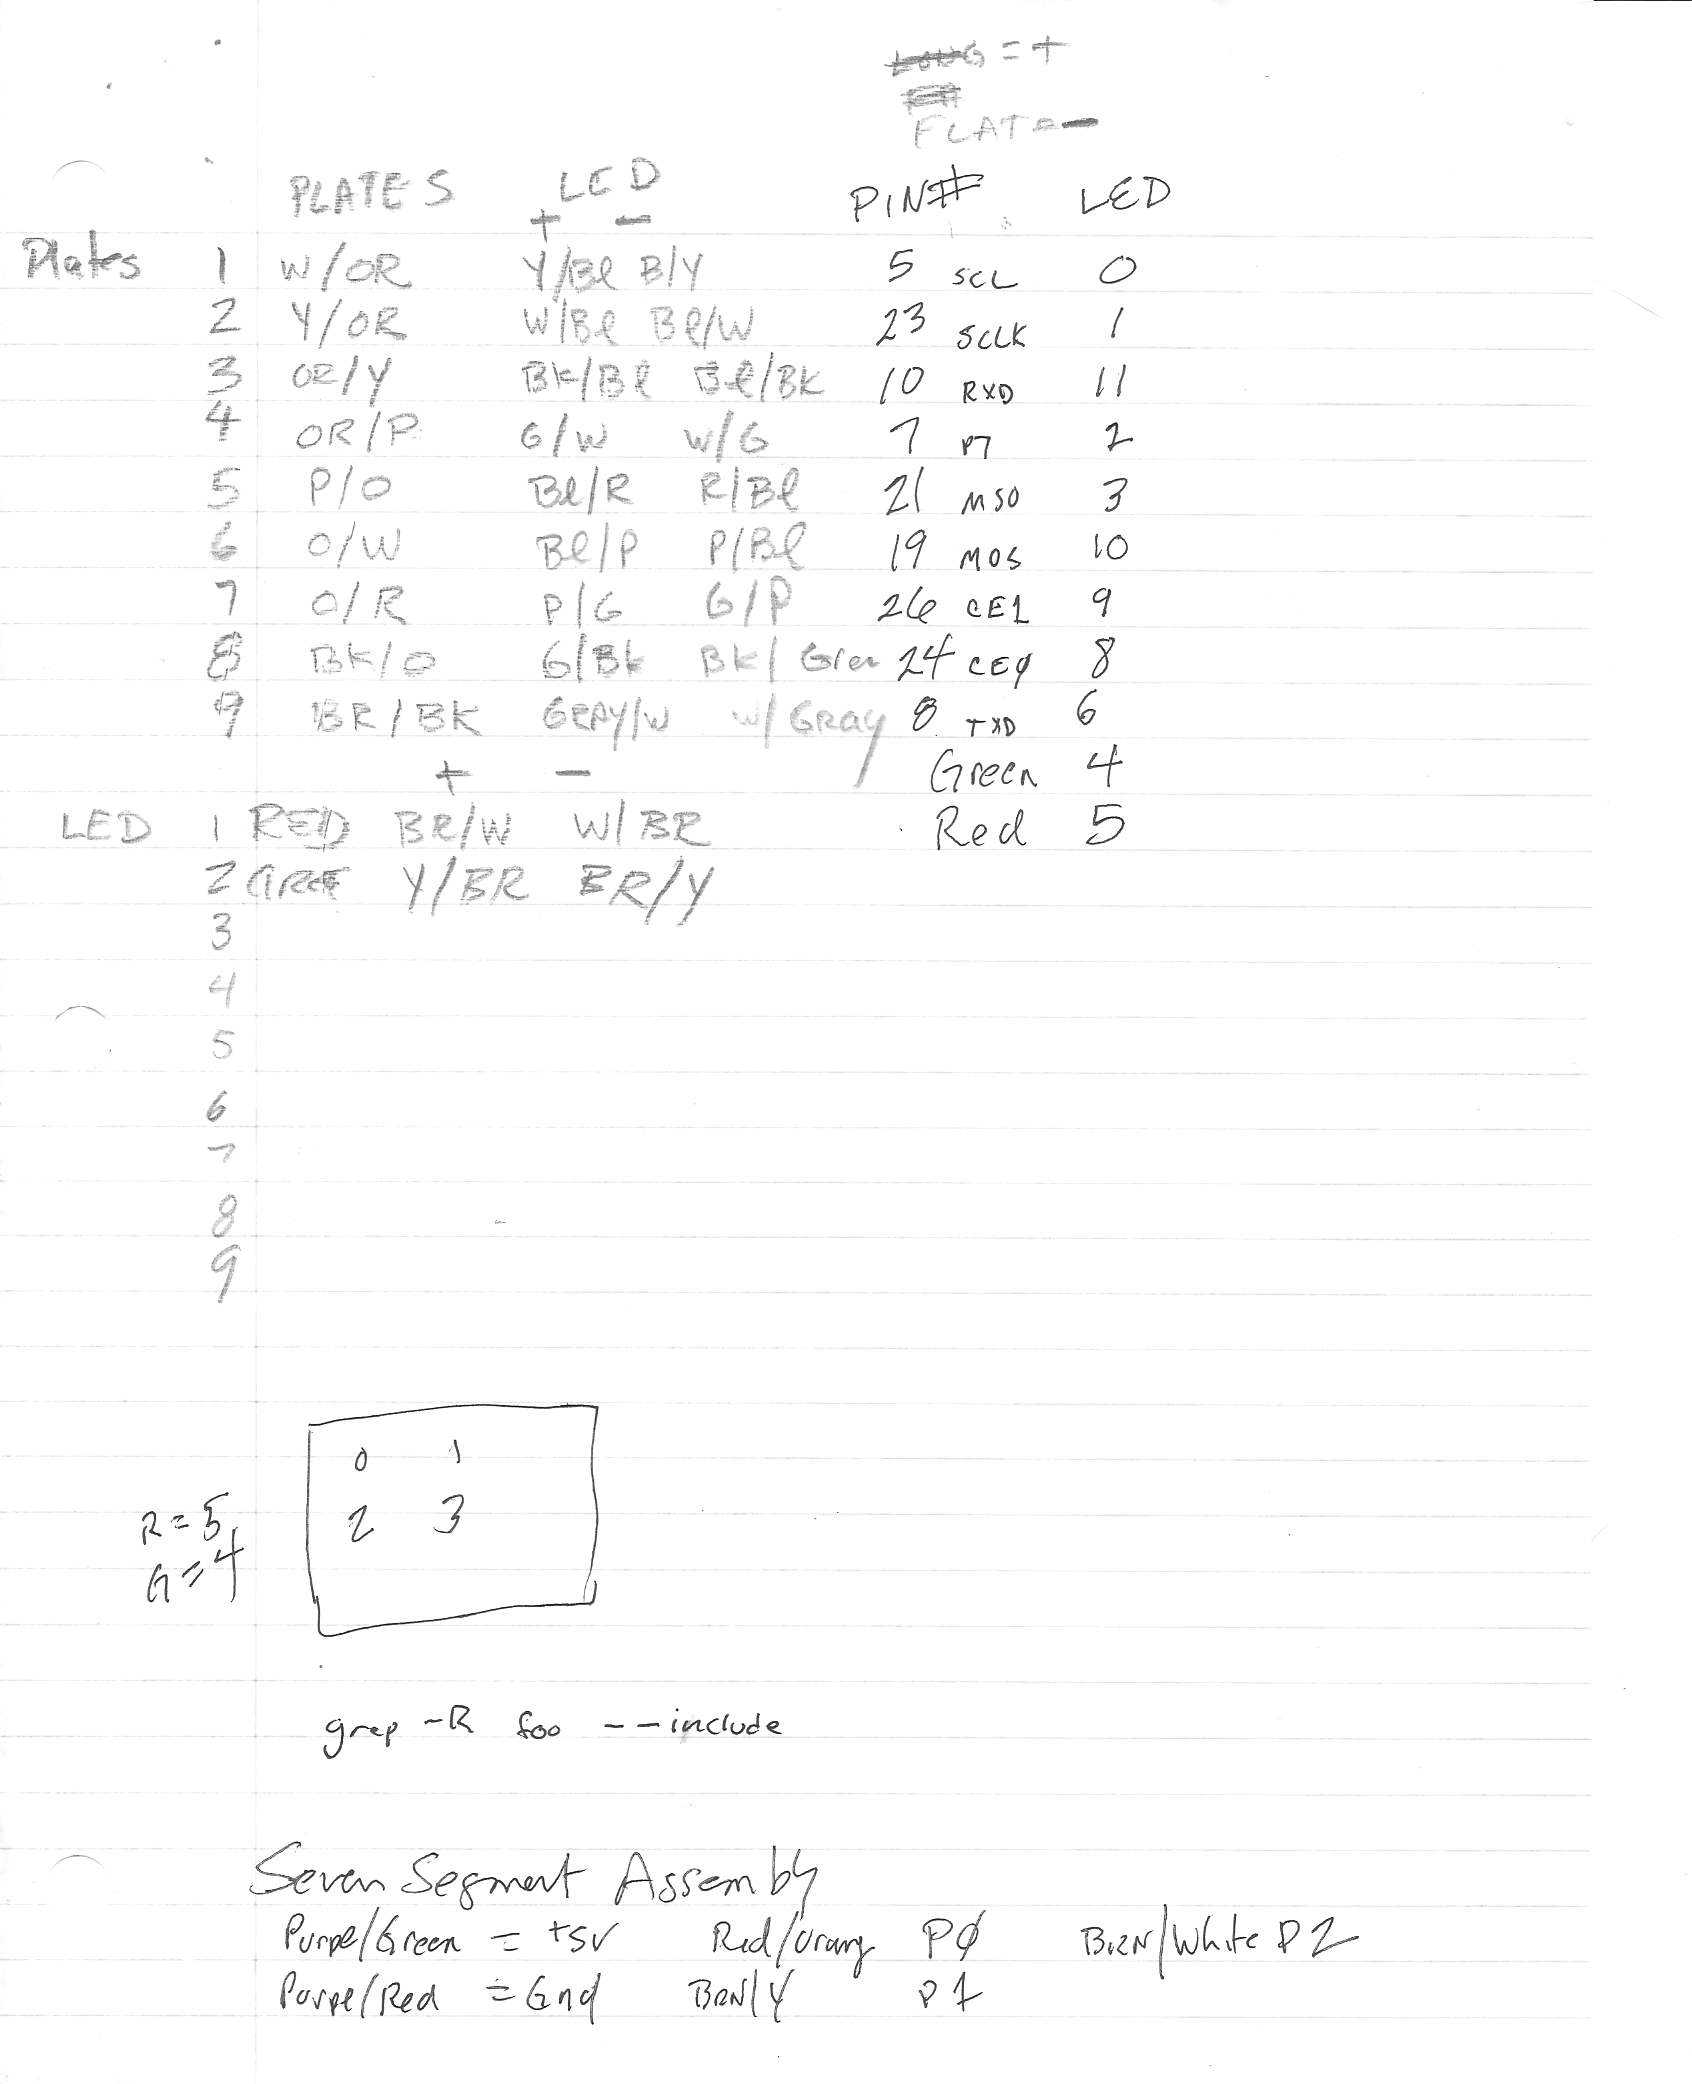 LONG = +
FLAT = -
PLATES LED PIN# LED
+ -
Plates 1 W/OR Y/Bl B/Y 5 SCL 0
2 Y/OR W/Bl Bl/W 23 SCLK 1
3 OR/Y BK/Bl Bl/BK 10 RXD 11
4 OR/P G/W W/G 7 P7 2
5 P/O Bl/R R/Bl 21 MSO 3
6 O/W Bl/P P/Bl 19 MOS 10
7 O/R P/G G/P 26 CE1 9
8 BK/O G/Bk BK/Gren 24 CE0 8
9 BR/BK GRAY/W W/GRay 8 TXD 6
+ - Green 4
LED 1 RED BR/W W/BR Red 5
2 GREE Y/BR BR/Y
3
4
5
6
7
8
9
0 1
R=5 2 3
G=4
grep -R foo --include
Seven Segment Assembly
Purpel/Green = +5V Red/Orang P0 BRN/White P2
Purpel/Red = Gnd BRN/Y P1